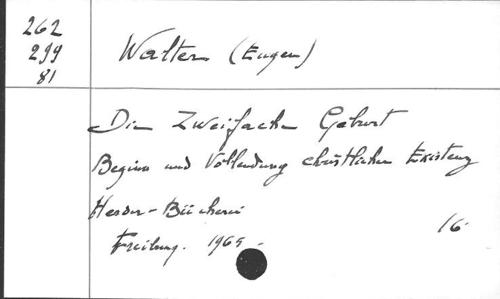 262
299
81
Walter (Eugen)
Die Zweifache Geburt
Beginn und Vollendung christlicher Existenz
Herder-Bücherei
16
Freiburg. 1965 -